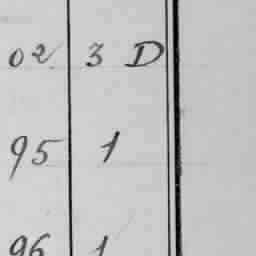 02 3 D
95 1
96 1